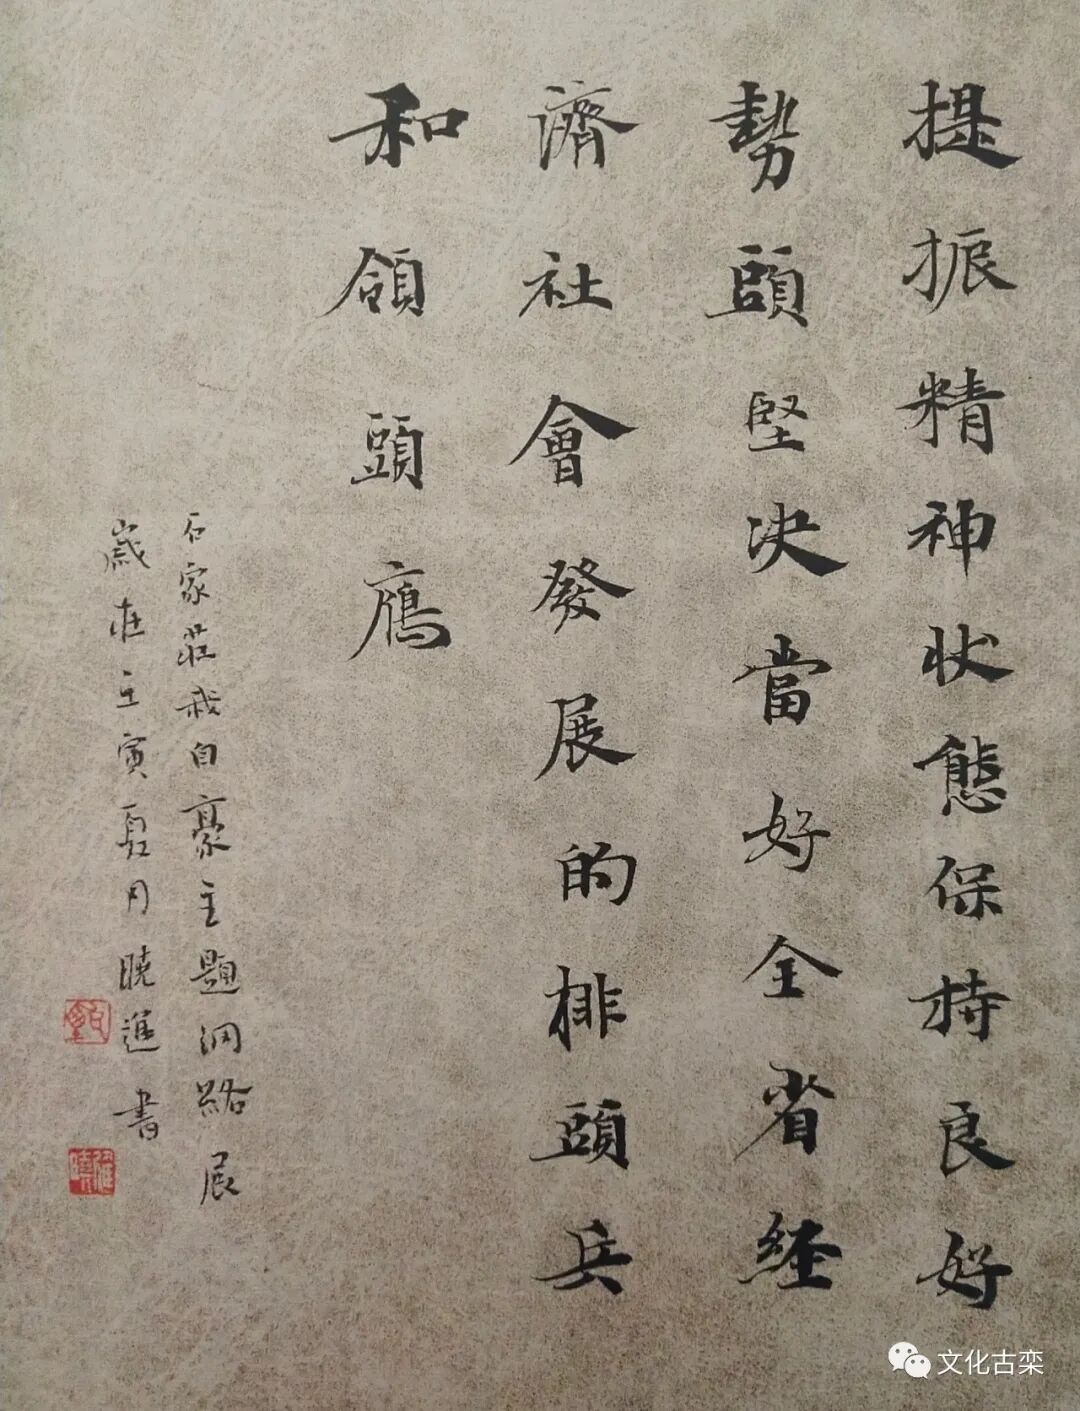 提振精神状態保持良好
勢頭堅决當好全省經
濟社會發展的排頭兵
和領頭鴈
石家莊我自豪主題網絡展
歲在壬寅夏月曉進書
文化古栾